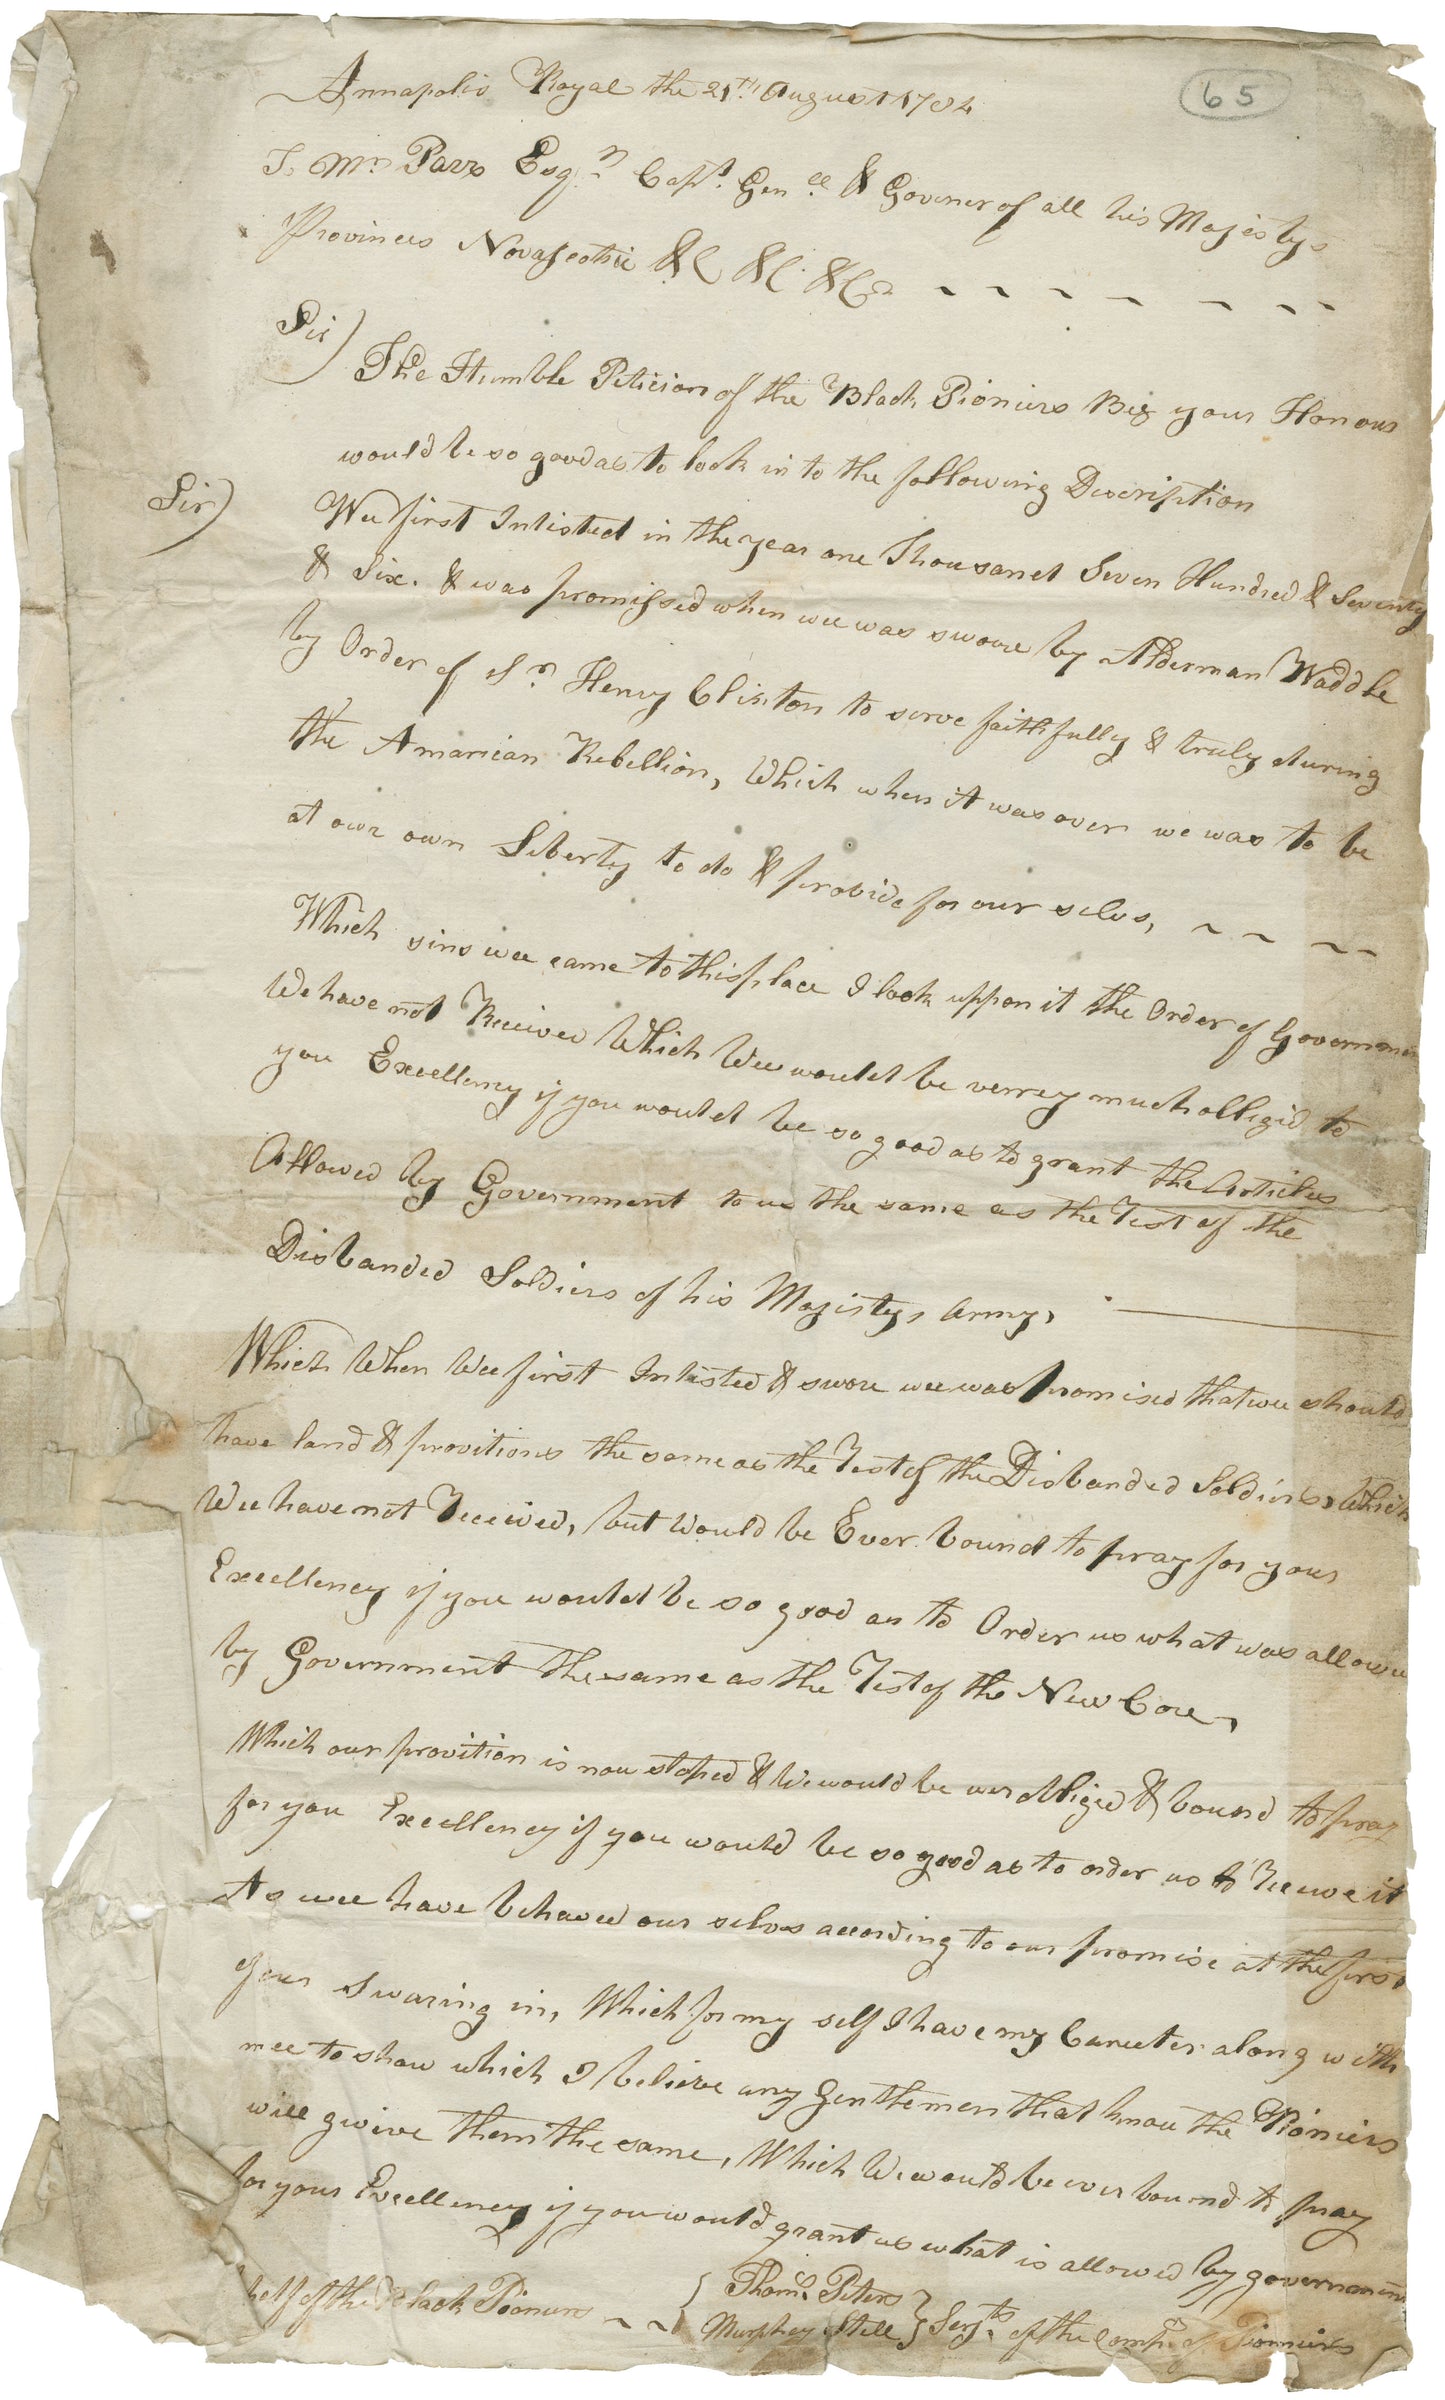 65
Annapolis Royal the 21th August 1784
To Mr Parrs Esqr Capt Genll & Govener of all his Majestys
Provinces Novascotia &C &C &Ca
Sir)
The Humble Petician of the Black Pioniers Beg your Honour
would be so good as to look in to the following Description
Sir)
Wee first Inlisted in the year one Thousand Seven Hundred & Seventy
& Six. & was promissed when wee was swore by Alderman Waddle
by Order of Sr Henry Clinton to serve faithfully & truly during
the Amarican Rebellion, Which when it was over we was to be
at owr own Liberty to do & provide for our selvs,
Which sins wee came to this place I look uppon it the Order of Governmen
We have not Received Which Wee would be verrey much obligid to
you Excellency if you would be so good as to grant the Articles
Allowed by Government to us the same as the Rest of the
Disbanded Soldiers of his Majestys Army,
Which When Wee first Inlisted & swore wee was promised that wee should
have land & provitions the same as the Rest of the Disbanded Soldiers, Which
Wee have not Received, but Would be Ever bound to pray for your
Excellency if you would be so good as to Order us what was allowe
by Government the same as the Rest of the New Core,
Which our provition is now stoped & We would be ver obliged & bound to pray
for you Excellency if you would be so good as to order us to Receive it
As wee have behaved our selvs according to our promise at the first
of our Swaring in, Which for my self I have my Carecter along with
mee to show which I believe any Gentlemen that know the Pioniers
will gwive them the same, Which We would be ever bound to pray
for your Excellency if you would grant us what is allowed by government
helf of the Black Pionurs { Thoms Peters
Murphey Still } Sergts of the Compy of Pionniers